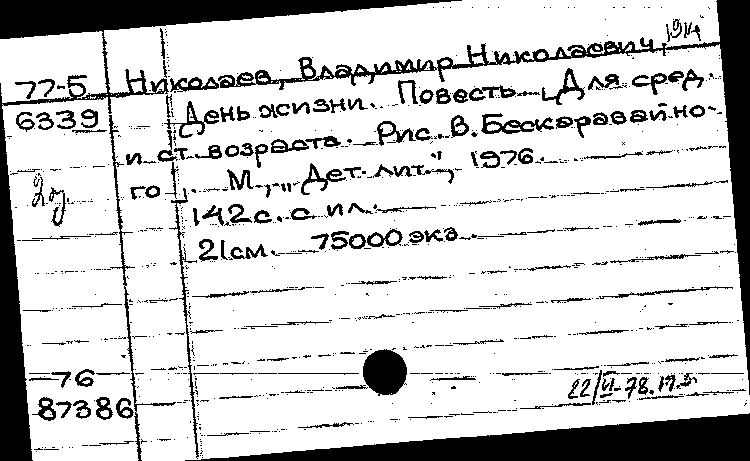 1914
77-5 Николаев, Владимир Николаевич,
6339 День жизни. Повесть. [Для сред.
и ст. возраста. Рис. В. Бескаравайно-
2 го]. М., "Дет. лит.", 1976.
142 с. с ил.
21 см. 75000 экз.
76
87386
22/VI-78.